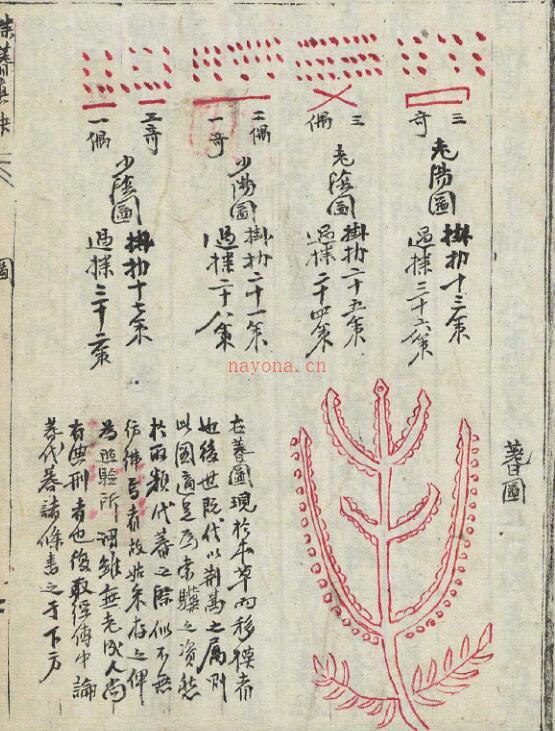 三
奇
老陽圖
掛扐十三策
過揲三十六策
三
偶
老陰圖
掛扐二十五策
過揲二十四策
二偶
一奇
少陽圖
掛扐二十一策
過揲二十八策
二奇
一偶
少陰圖
掛扐十七策
過揲三十二策
蓍圖
右蓍圖現於本草而移模者
也後世既代以荊蒿之屬則
此圖適足為索驥之資然
於所類代蓍之際似不無
彷彿焉者故姑存之俾
為照驗所謂雖無老成人尚
有典刑者也後取經傳中論
蓍代蓍諸條書之于下方
圖
nayona.cn